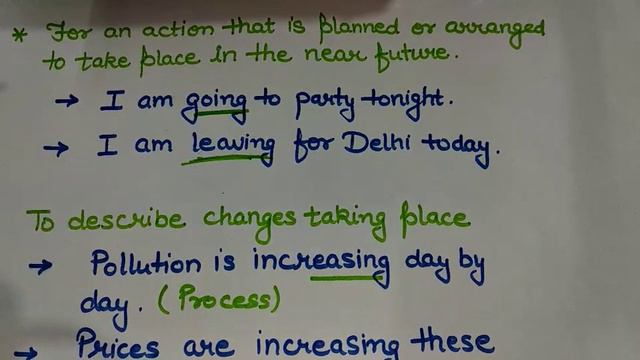 * For an action that is planned or arranged
to take place in the near future.
→ I am going to party tonight.
→ I am leaving for Delhi today.
To describe changes taking place
→ Pollution is increasing day by
day. (Process)
→ Prices are increasing these